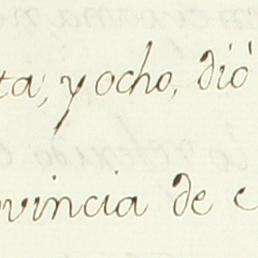 ta, y ocho, dió
ovincia de